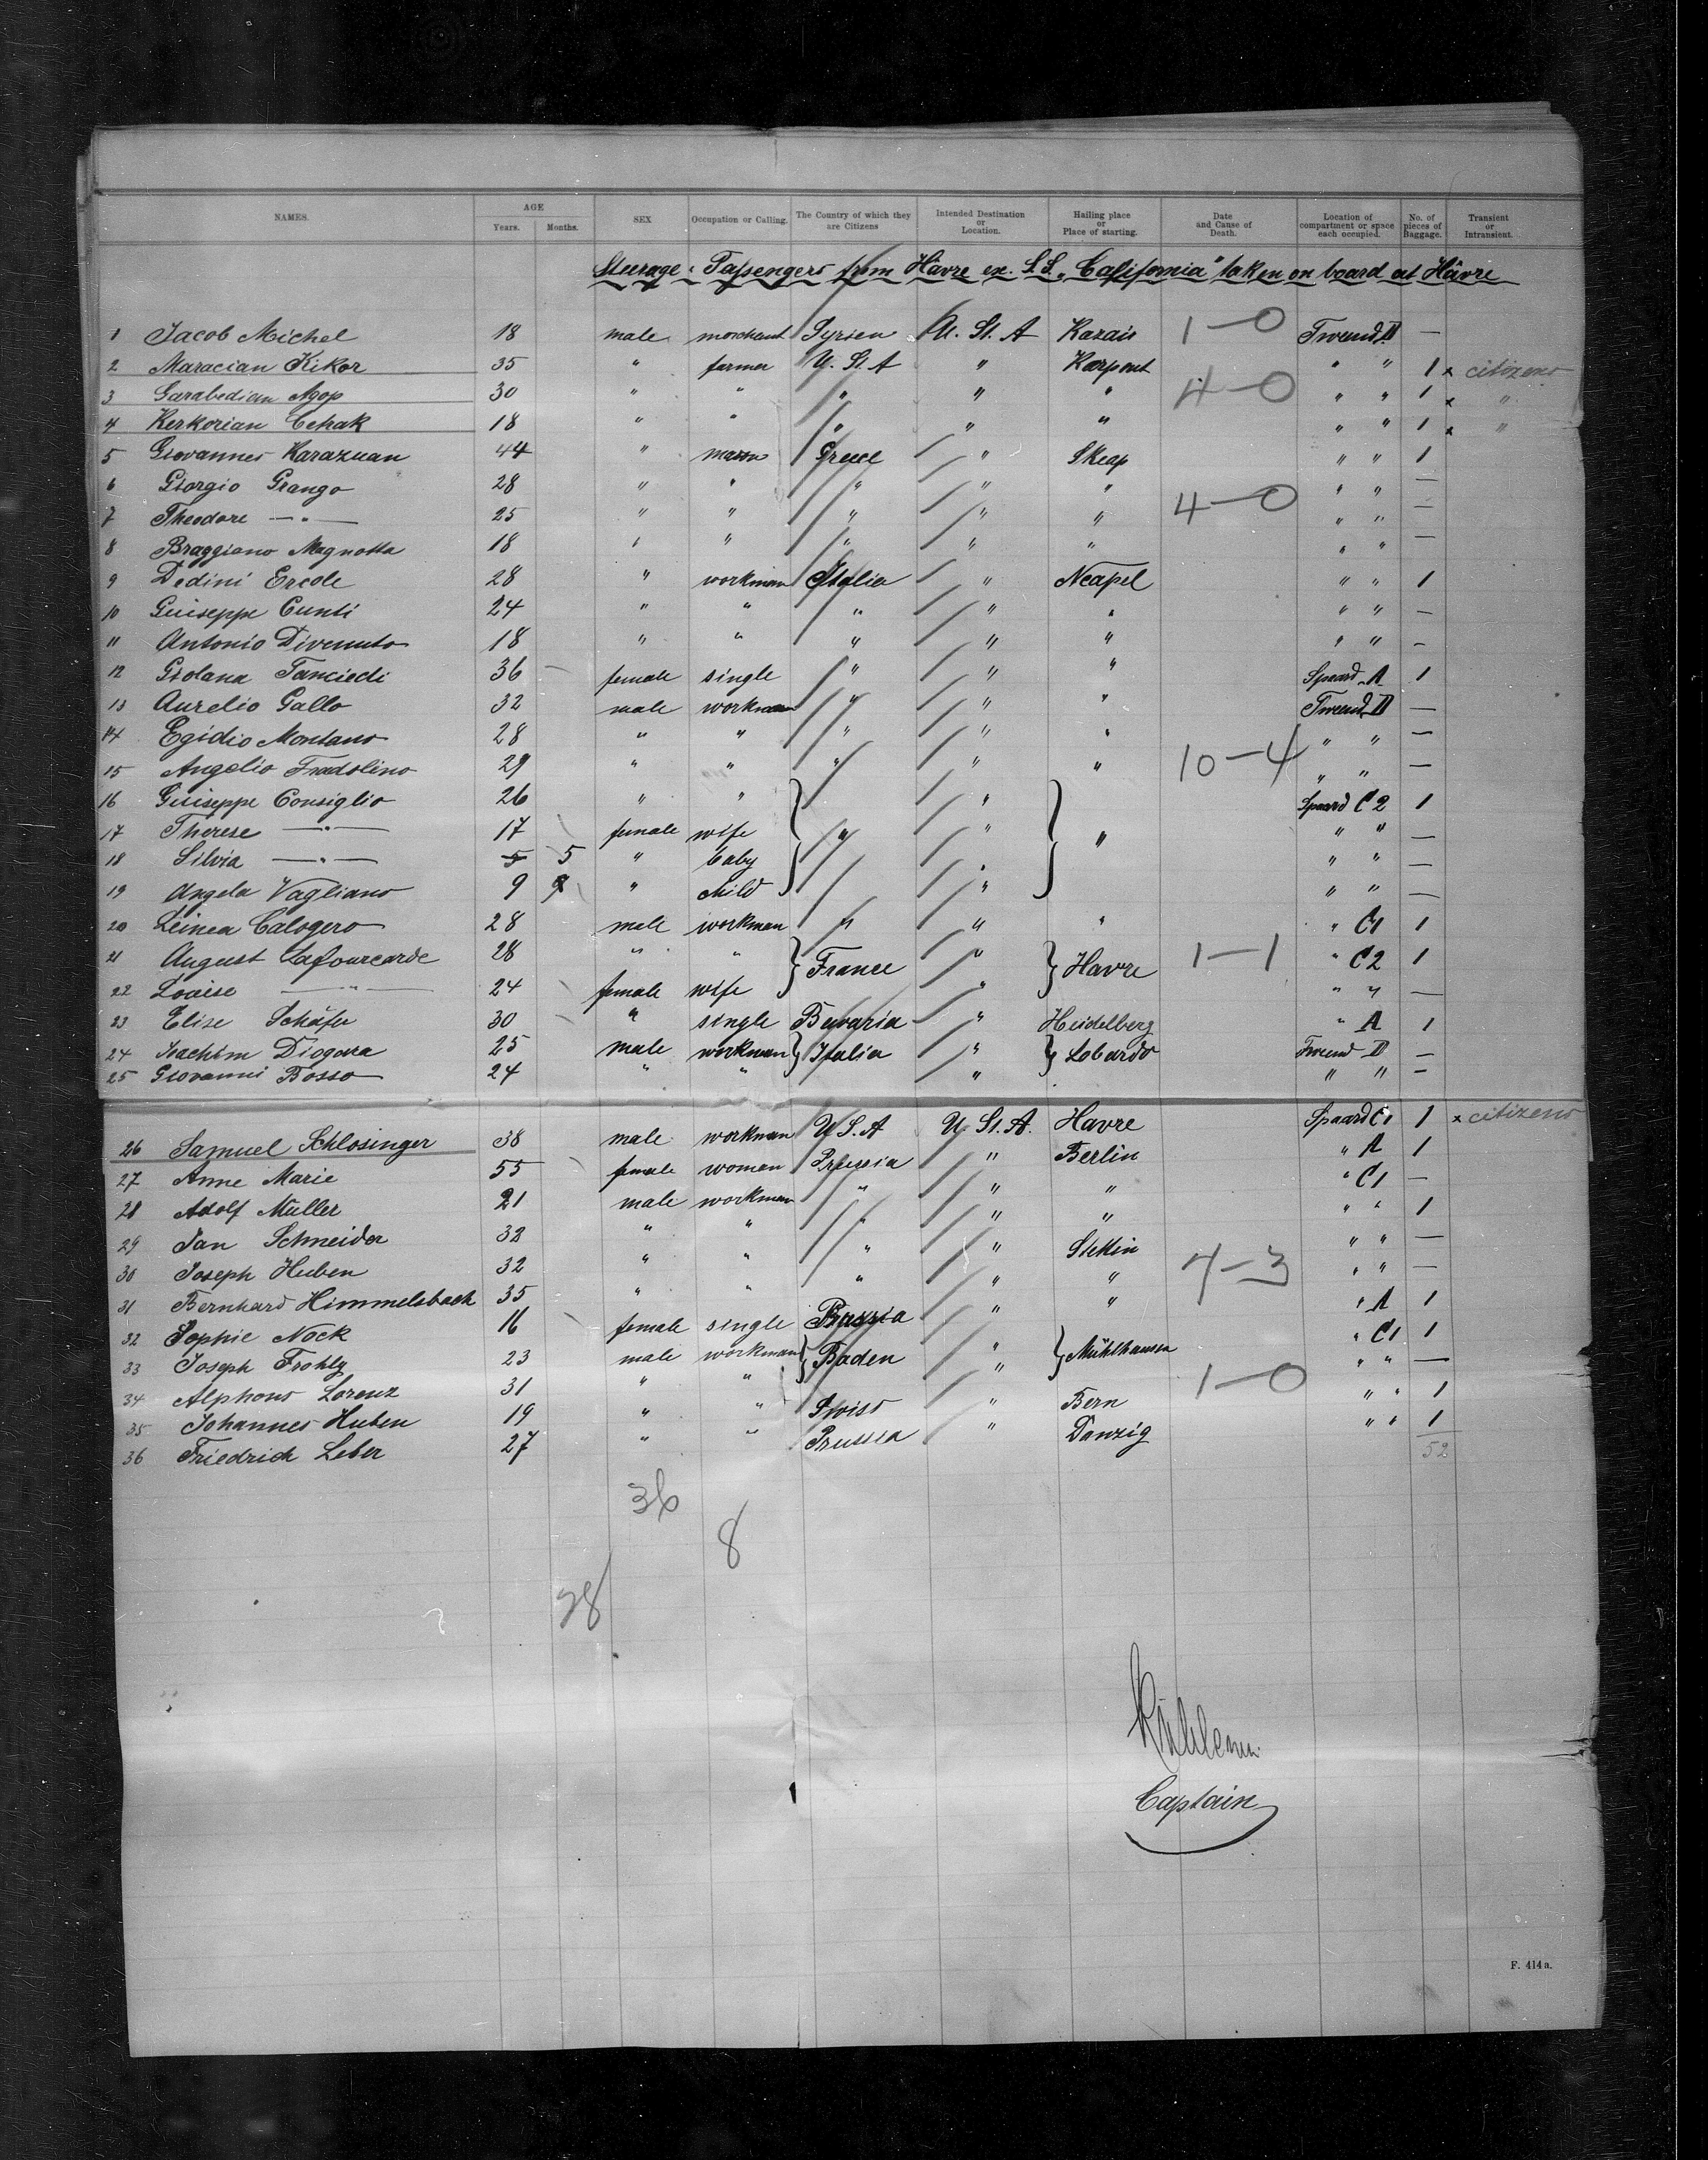 NAMES. AGE Years. Months. SEX Occupation or Calling. The Country of which they are Citizens Intended Destination or Location. Hailing place or Place of starting. Date and Cause of Death. Location of compartment or space each occupied. No. of pieces of Baggage. Transient or Intransient.
Steerage: Passengers from Hâvre ex. S.S. "California" taken on board at Hâvre
1 Jacob Michel 18 male merchant Syrien U. St. A Kazais 1—0 Tweend. II —
2 Maracian Kikor 35 " farmer U. St. A " Karput " " 1 x citizens
3 Garabedian Agop 30 " " " " " 4—0 " " 1 x "
4 Kerkorian Cehak 18 " " " " " " " 1 x "
5 Giovannes Karazuan 44 " mason Greece " Skeap " " 1
6 Giorgio Grango 28 " " " " " " " —
7 Theodore —"— 25 " " " " " 4—0 " " —
8 Braggiano Magnotta 18 " " " " " " " —
9 Dedini Ercole 28 " workman Italia " Neapel " " 1
10 Guiseppe Cunti 24 " " " " " " " —
11 Antonio Divenuto 18 " " " " " " " —
12 Giolana Tanciedi 36 — female single " " " Spaard. A 1
13 Aurelio Gallo 32 male workman " " " Tweend. II —
14 Egidio Montano 28 " " " " " " " —
15 Angelio Fradolino 29 " " " " " 10—4 " " —
16 Guiseppe Consiglio 26 " " " Spaard C2 1
17 Therese —"— 17 female wife " " " " " —
18 Silvia —"— 5 5 " baby " " " —
19 Angela Vagliano 9 " child " " " —
20 Leinea Calogero 28 male workman " " " " C1 1
21 August Lafourcarde 28 " " France " Havre 1—1 " C2 1
22 Louise —"— 24 female wife " " " —
23 Elise Schäfer 30 " single Bavaria " Heidelberg " A 1
24 Joachim Diogova 25 male workman Italia " Lobardo Tweend II —
25 Giovanni Bosso 24 " " " " " —
26 Samuel Schlosinger 38 male workman U S. A U St. A. Havre Spaard C1 1 x citizens
27 Anne Marie 55 female woman Prussia " Berlin " A 1
28 Adolf Müller 21 male workman " " " " C1 —
29 Jan Schneider 32 " " " " " " " 1
30 Joseph Huben 32 " " " " Stettin " " —
31 Bernhard Himmelsbach 35 " " " " " 7—3 " " —
32 Sophie Nock 16 female single " " " A 1
33 Joseph Frohly 23 male workman Baden " Mühlhausen " C1 1
34 Alphons Lorenz 31 " " " " " —
35 Johannes Huben 19 " " Swiss " Bern 1—0 " " 1
36 Friedrich Leber 27 " " Prussia " Danzig " " 1
52
36
8
28
Captain
F. 414a.